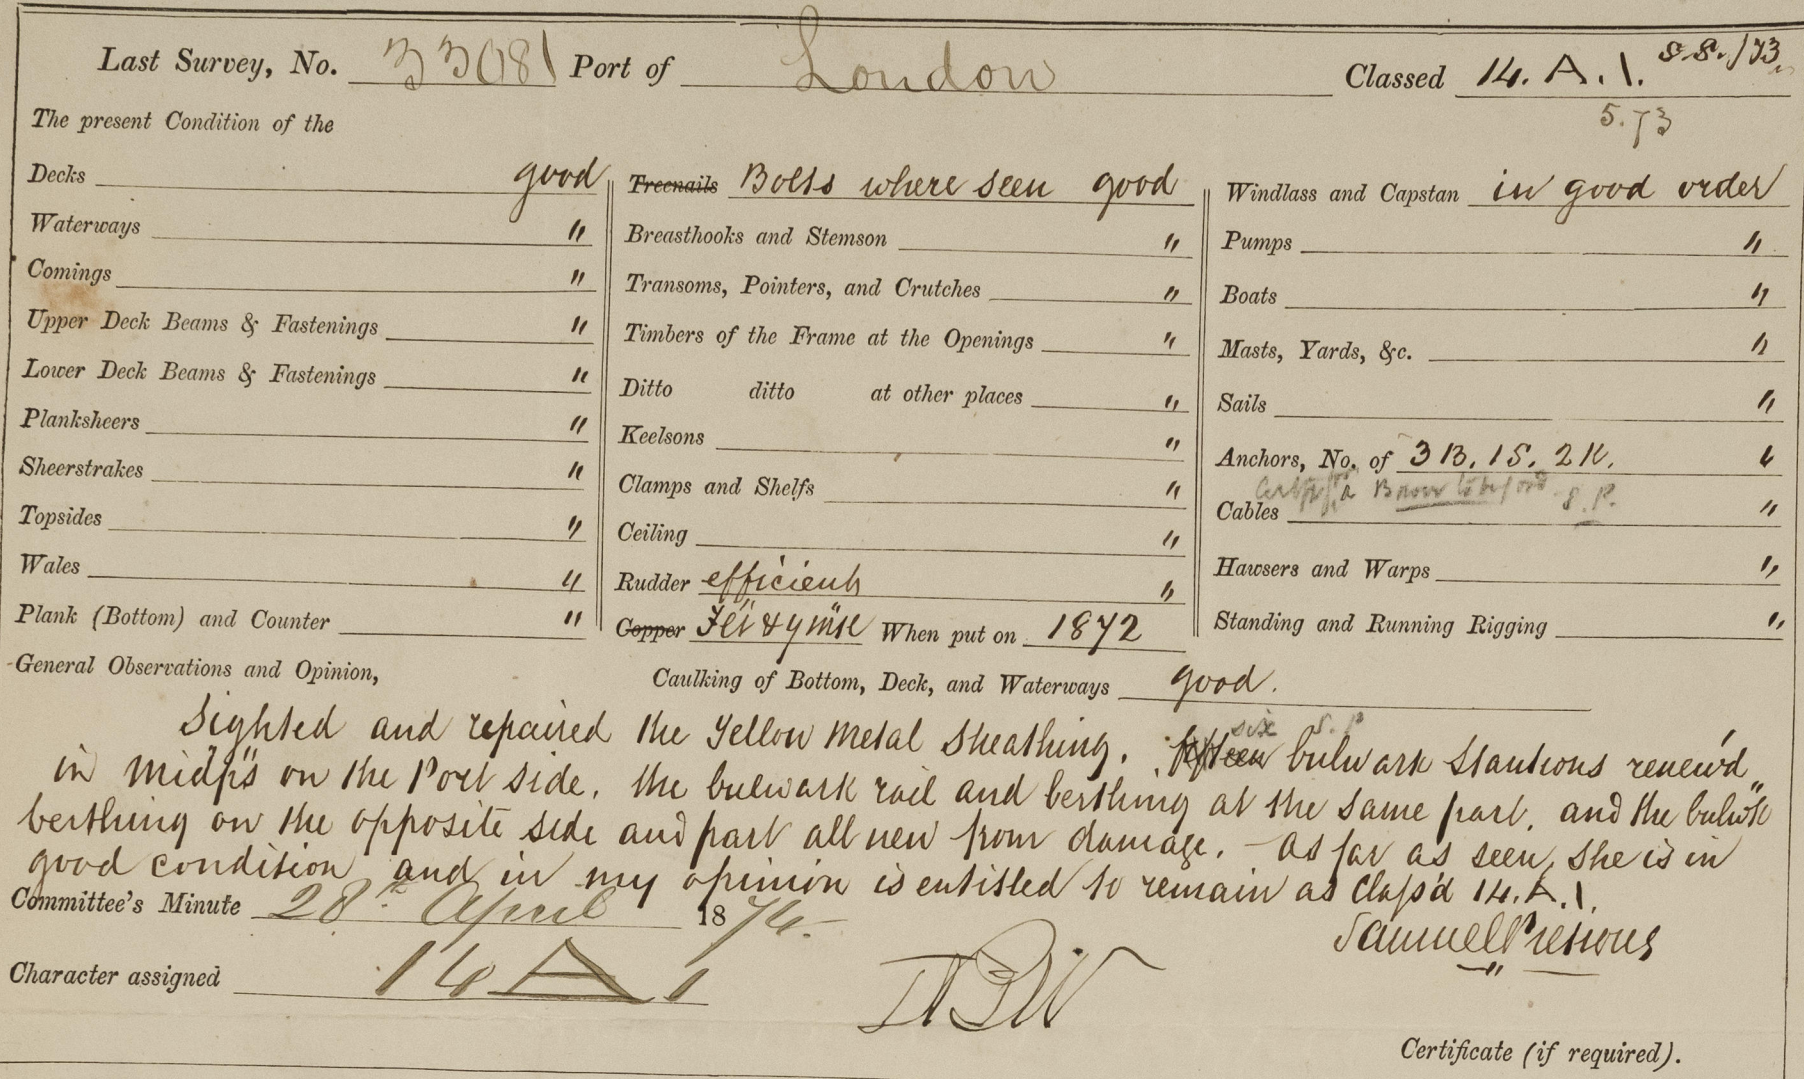 Last Survey, No. 33081 Port of London Classed 14. A. 1. S.S./73
5.73
The present Condition of the
Decks good
Waterways "
Comings "
Upper Deck Beams & Fastenings "
Lower Deck Beams & Fastenings "
Planksheers "
Sheerstrakes "
Topsides "
Wales "
Plank (Bottom) and Counter "
Treenails Bolts where seen good
Breasthooks and Stemson "
Transoms, Pointers, and Crutches "
Timbers of the Frame at the Openings "
Ditto ditto at other places "
Keelsons "
Clamps and Shelfs "
Ceiling "
Rudder efficient "
Copper Felt & y mtl When put on 1872
Windlass and Capstan in good order
Pumps "
Boats "
Masts, Yards, &c. "
Sails "
Anchors, No. of 3 B. 1 S. 2 K. "
S.P.
Cables "
Hawsers and Warps "
Standing and Running Rigging "
General Observations and Opinion, Caulking of Bottom, Deck, and Waterways good.
six S.P
Sighted and repaired the Yellow Metal Sheathing. fifteen bulwark Stantions renew'd
in Midp's on the Port side. the bulwark rail and berthing at the same part. and the bulwk
berthing on the opposite side and part all new from damage. - as far as seen, she is in
good condition and in my opinion is entitled to remain as Class'd 14. A. 1.
Committee's Minute 28th April 1874
Samuel Pretious
Character assigned 14 A 1
Certificate (if required).